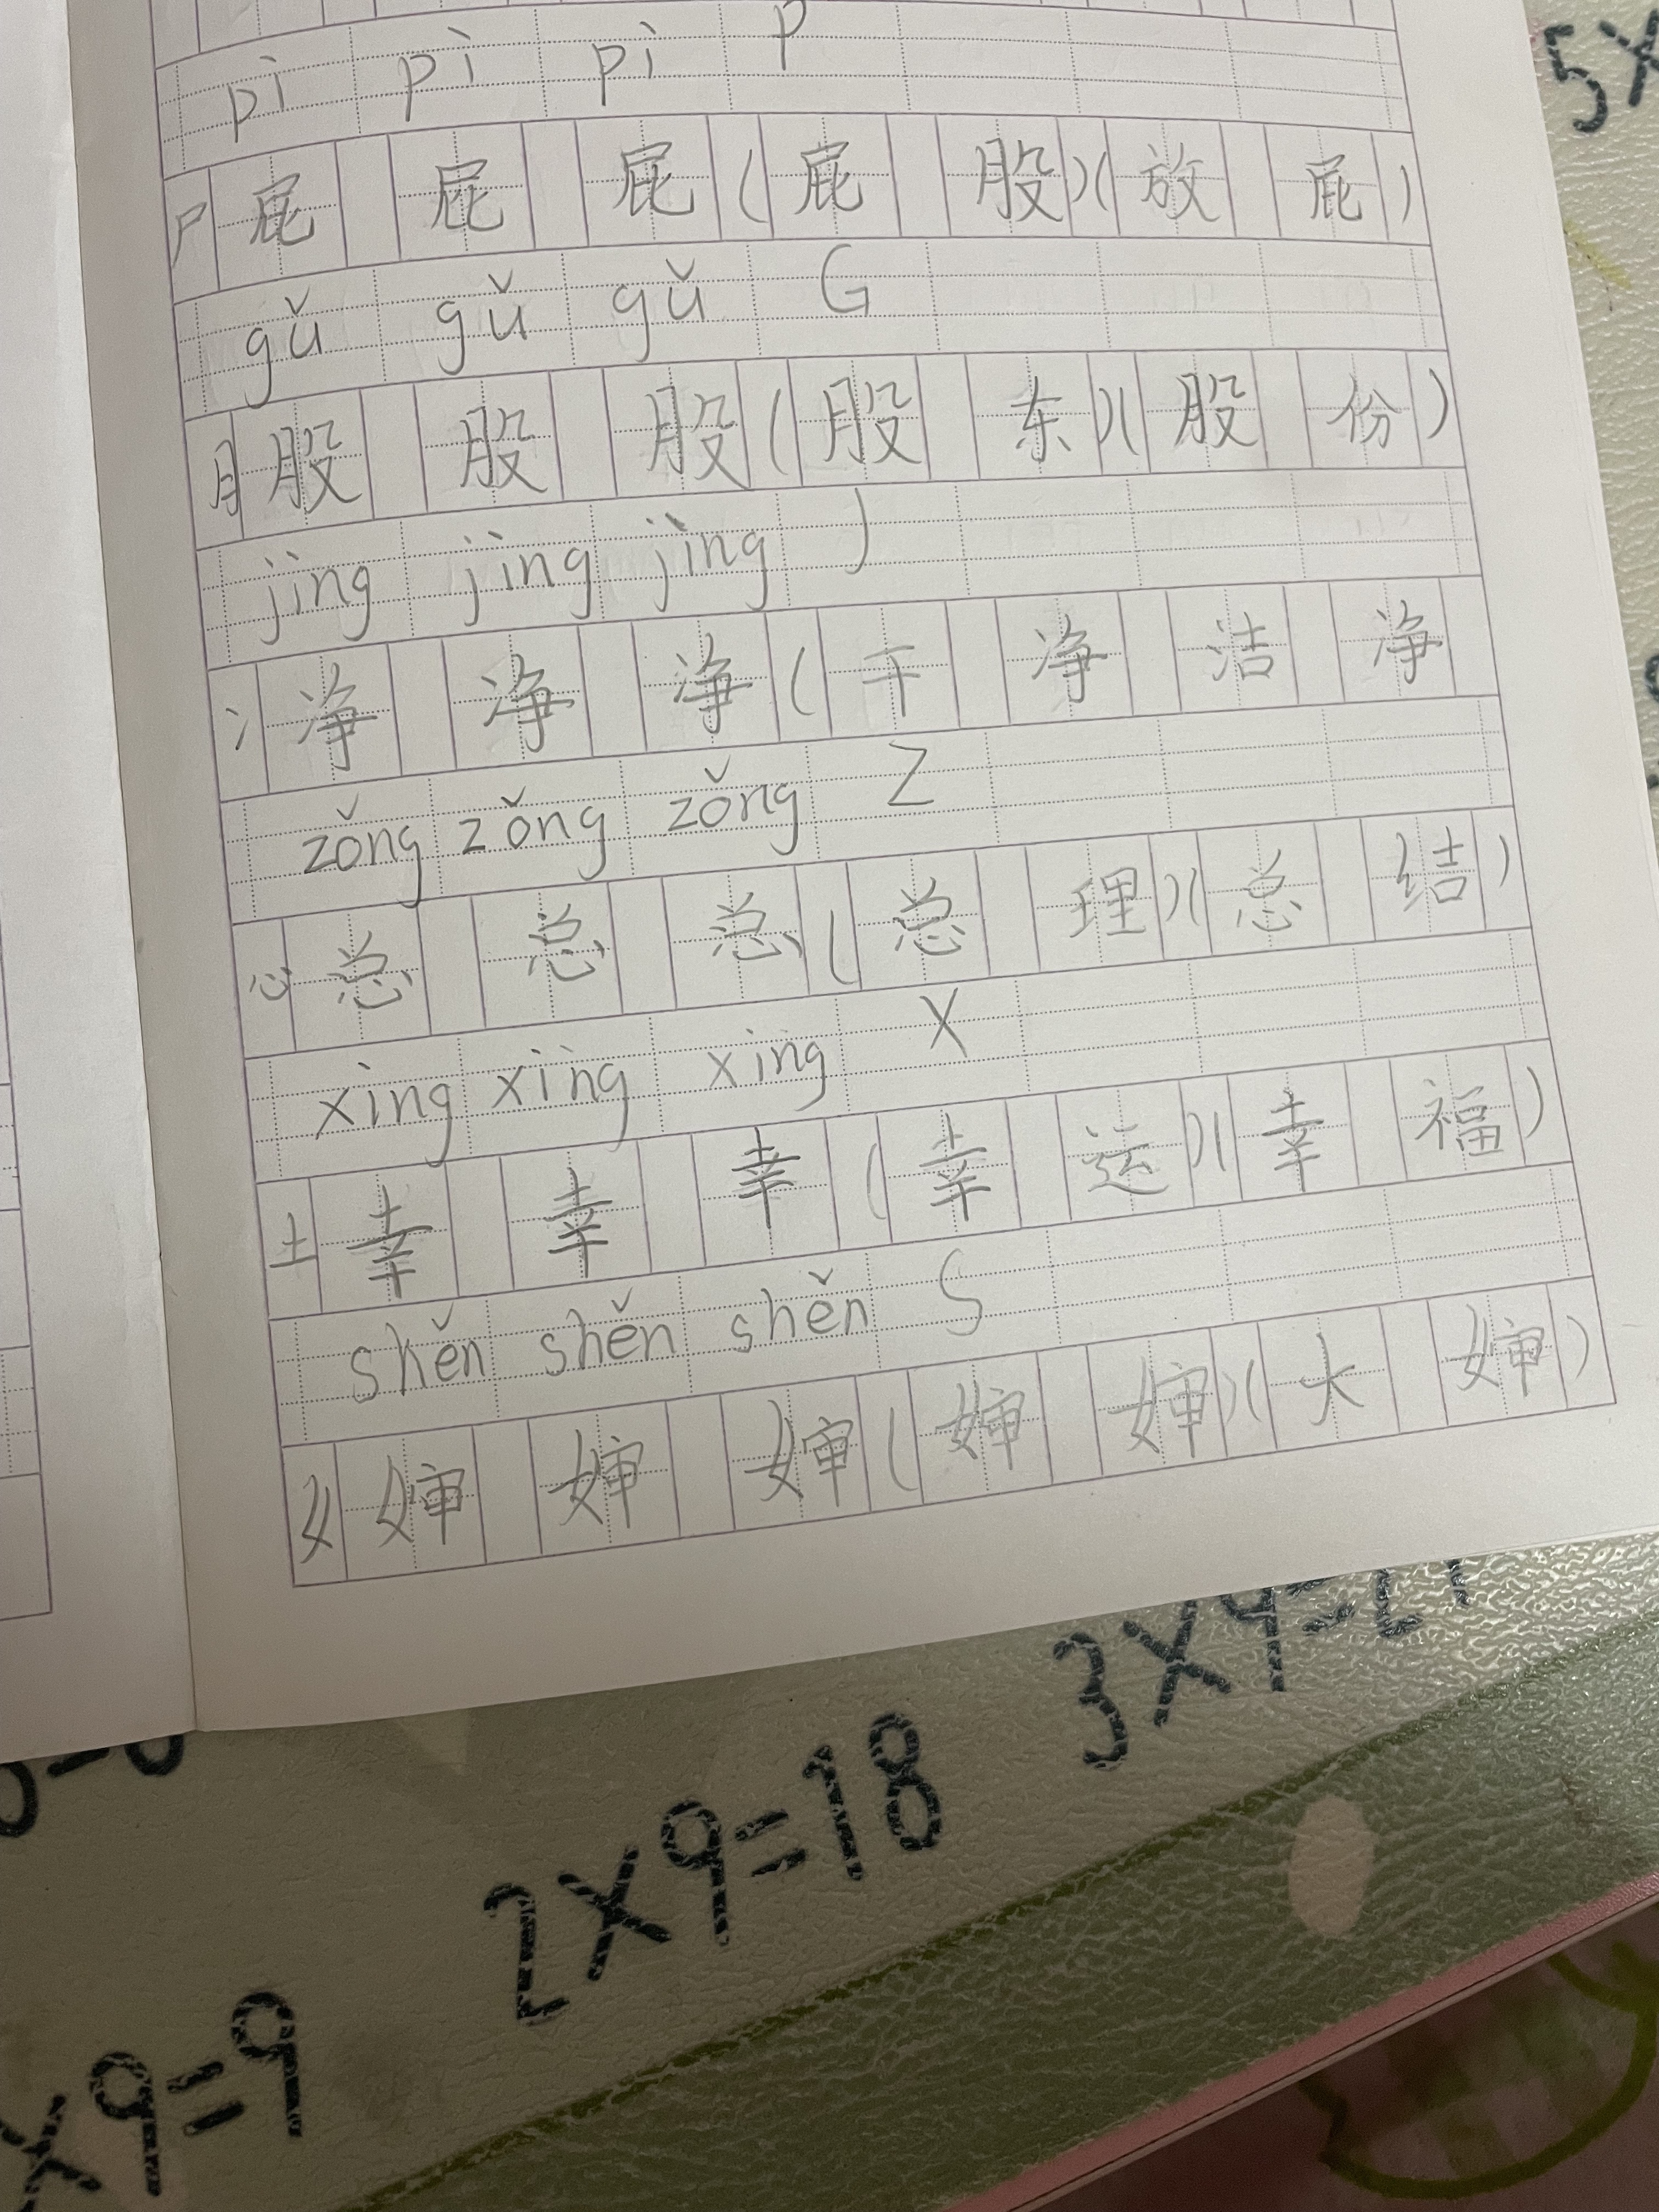 pì pì pì P
尸 屁 屁 屁 ( 屁 股 ) ( 放 屁 )
gǔ gǔ gǔ G
月 股 股 股 ( 股 东 ) ( 股 份 )
jìng jìng jìng J
冫 净 净 净 ( 干 净 洁 净
zǒng zǒng zǒng Z
心 总 总 总 ( 总 理 ) ( 总 结 )
xìng xìng xìng X
土 幸 幸 幸 ( 幸 运 ) ( 幸 福 )
shěn shěn shěn S
女 婶 婶 婶 ( 婶 婶 ) ( 大 婶 )
5×
3×9=27
2×9=18
×9=9